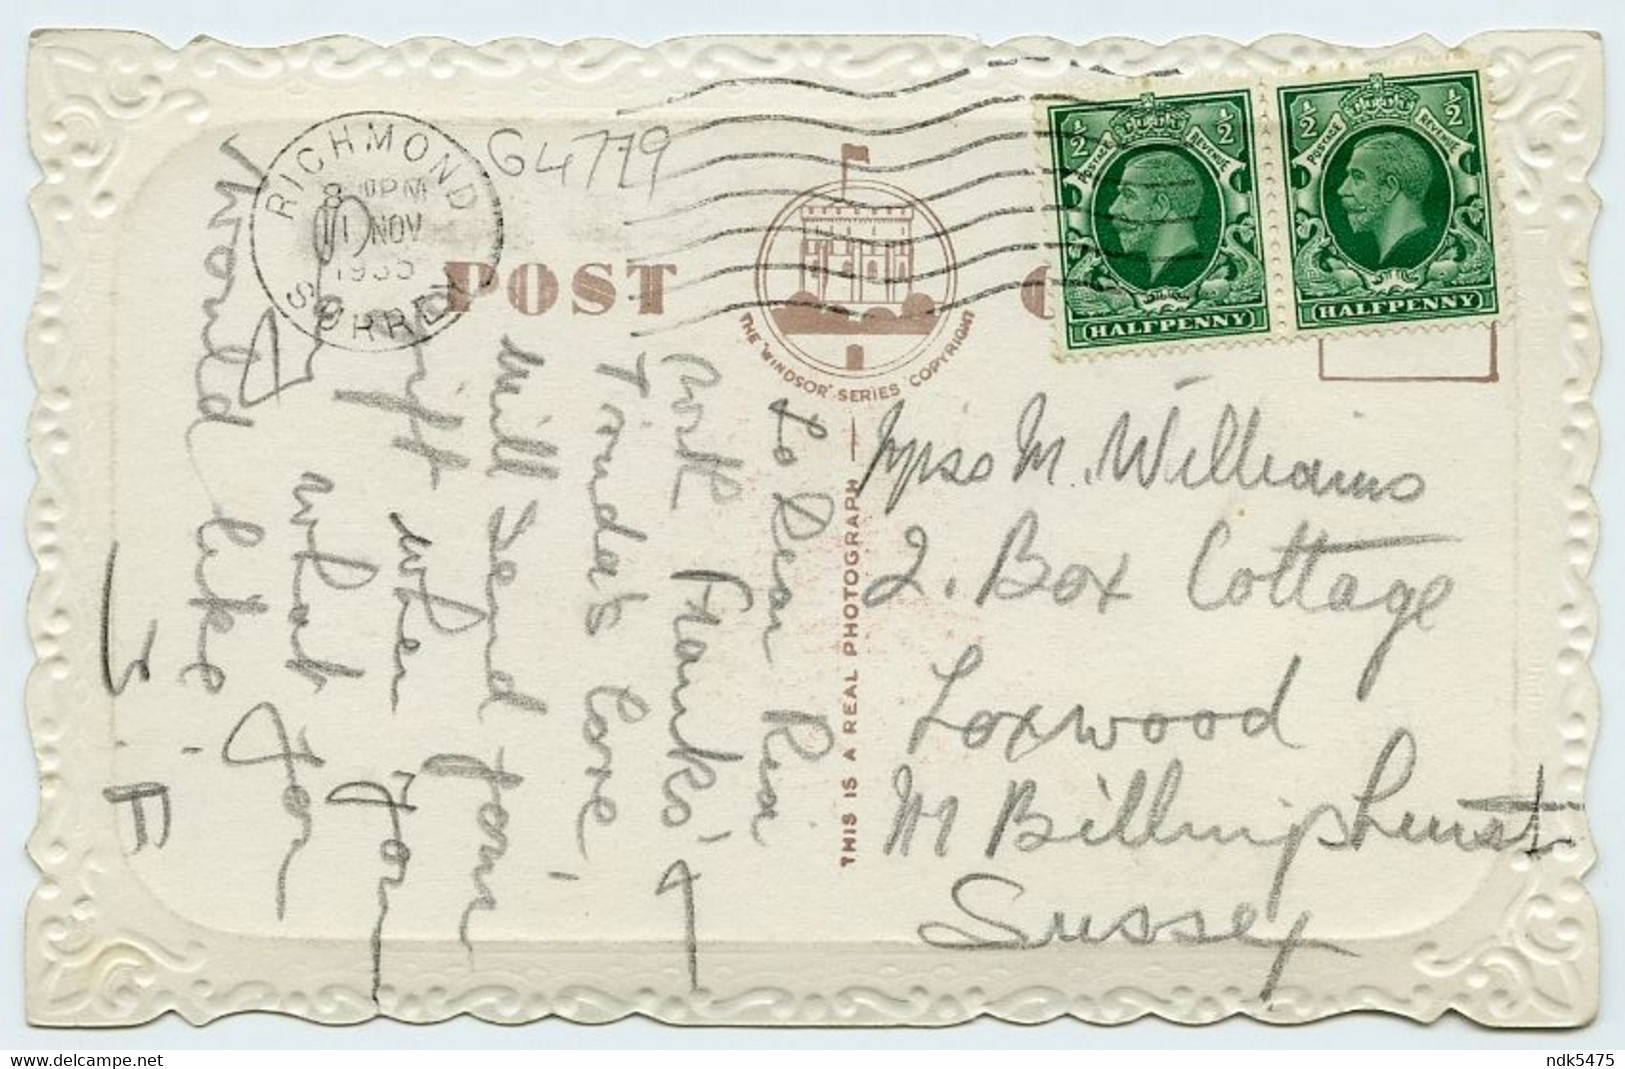 RICHMOND
8 PM
11 NOV
1935
SURREY
G4779
POST
C
THE 'WINDSOR' SERIES COPYRIGHT
THIS IS A REAL PHOTOGRAPH
½ POSTAGE REVENUE ½
HALFPENNY
½ POSTAGE REVENUE ½
HALFPENNY
To Dear
with Thanks &
Fondest Love,
will Send your
gift when you
what you
Would like.
J.F
M. Williams
2. Box Cottage
Loxwood
Nr Billingshurst
Sussex
ndk5475